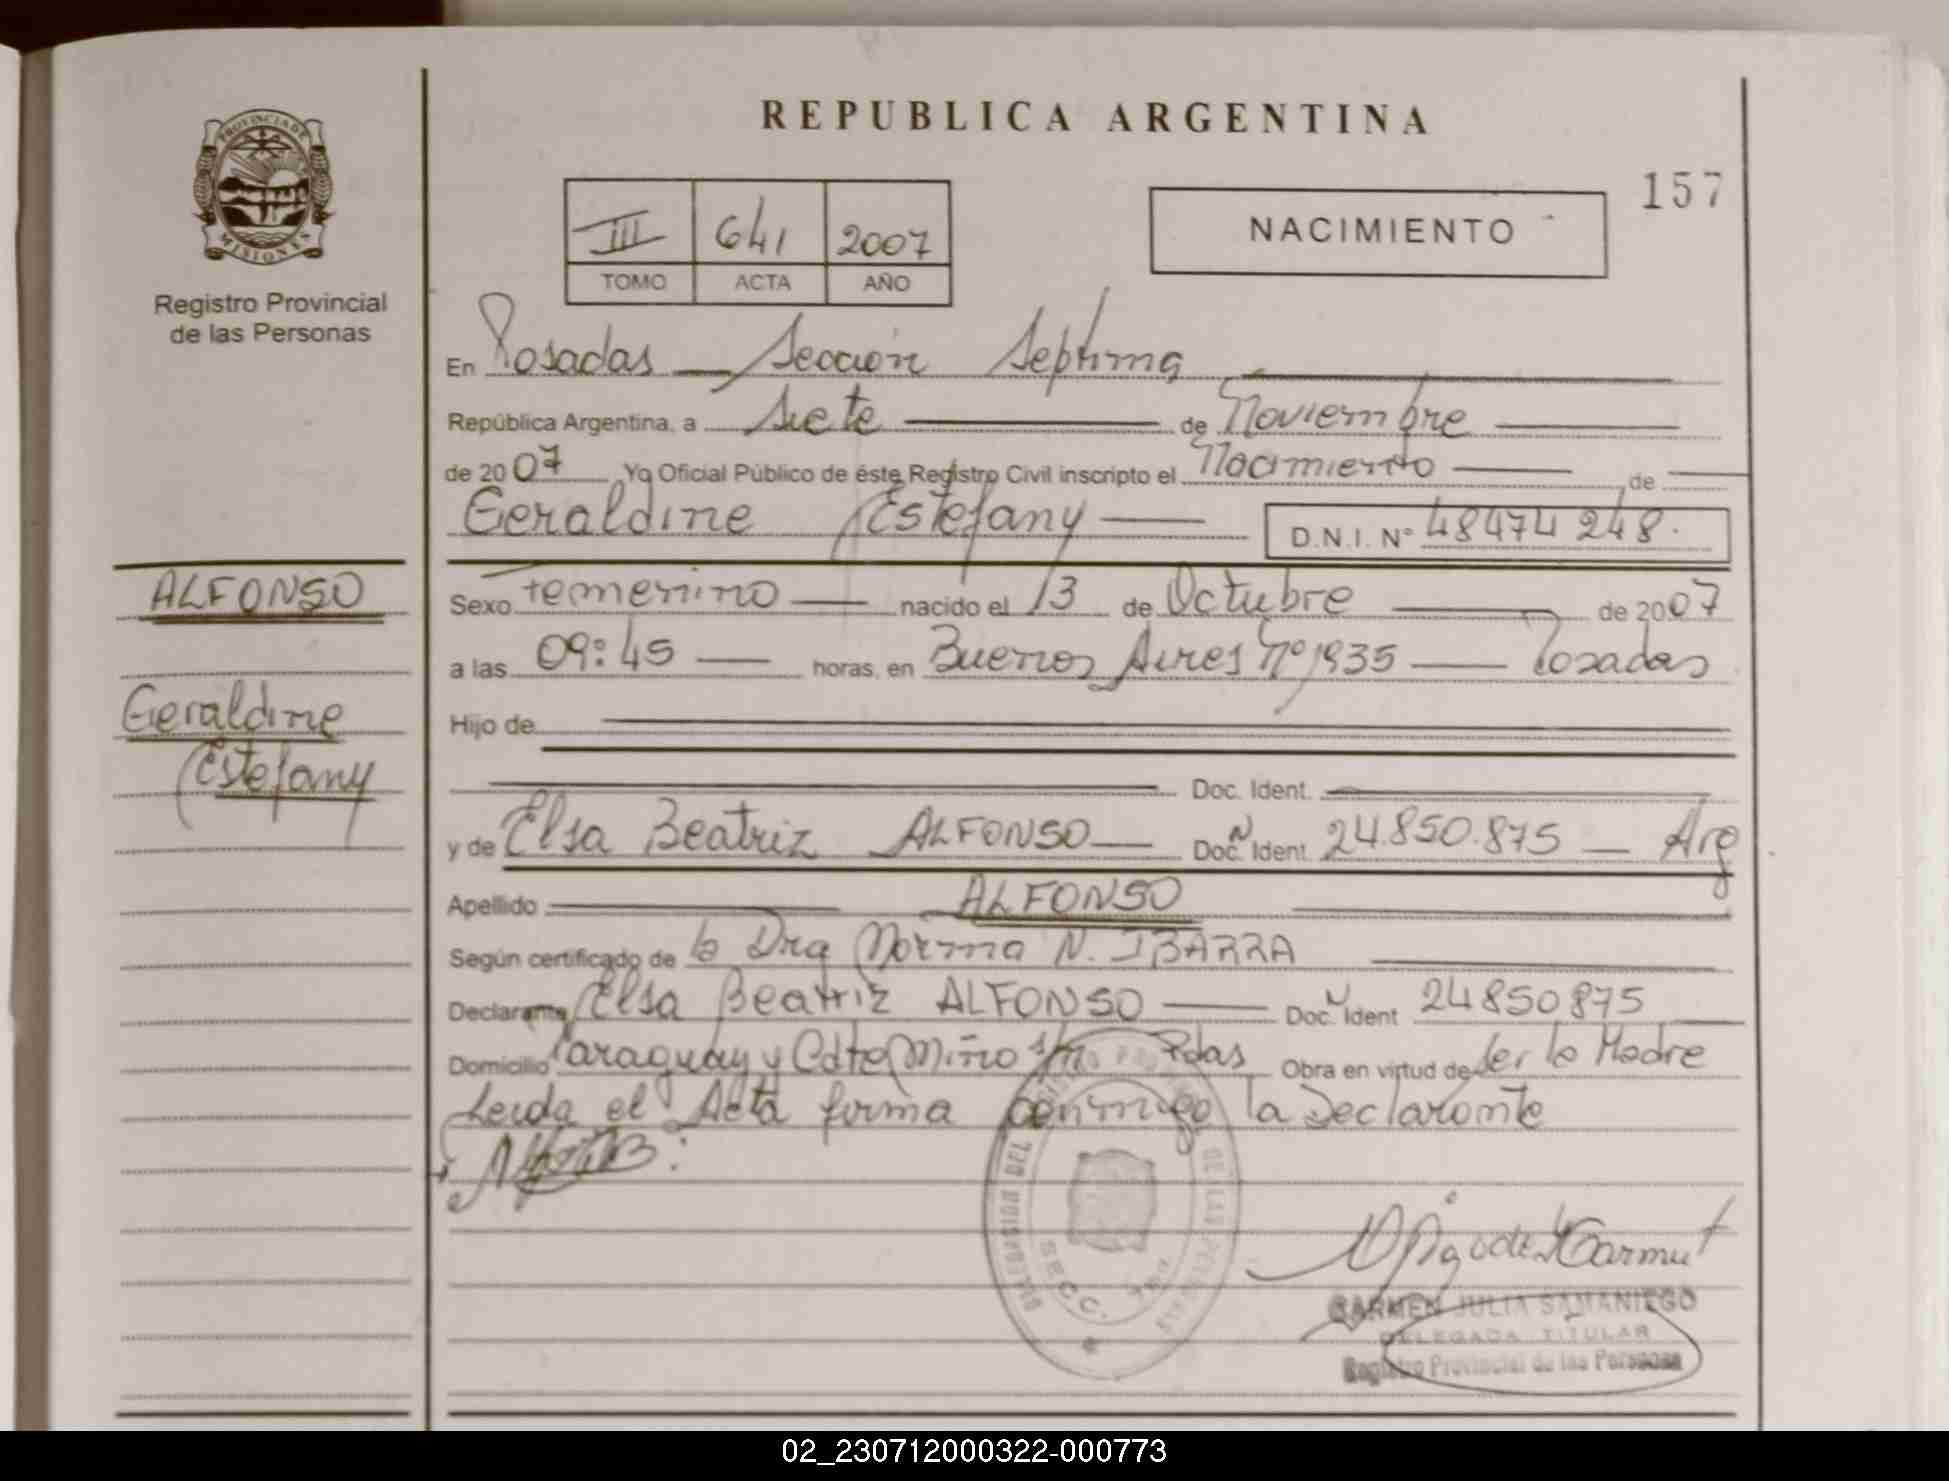 PROVINCIA DE
MISIONES
Registro Provincial
de las Personas
ALFONSO
Geraldine
Estefany
REPUBLICA ARGENTINA
157
III 641 2007
TOMO ACTA AÑO
NACIMIENTO
En Posadas Sección Septima
República Argentina, a Siete de Noviembre
de 2007 Yo Oficial Público de éste Registro Civil inscripto el Nacimiento de
Geraldine Estefany D.N.I. Nº 48474248.
Sexo Femenino nacido el 13 de Octubre de 2007
a las 09:45 horas, en Buenos Aires Nº 1935 Posadas
Hijo de
Doc. Ident.
y de Elsa Beatriz ALFONSO Doc. N Ident. 24.850.875 Arg
Apellido ALFONSO
Según certificado de la Dra Norma N. IBARRA
Declarante Elsa Beatriz ALFONSO Doc. N Ident 24850875
Domicilio Paraguay y Cdte Miño s/n Pdas Obra en virtud de Ser la Madre
Leida el Acta firma conmigo la Declarante
SECC. 7
CARMEN JULIA SAMANIEGO
DELEGADA TITULAR
Registro Provincial de las Personas
02_230712000322-000773